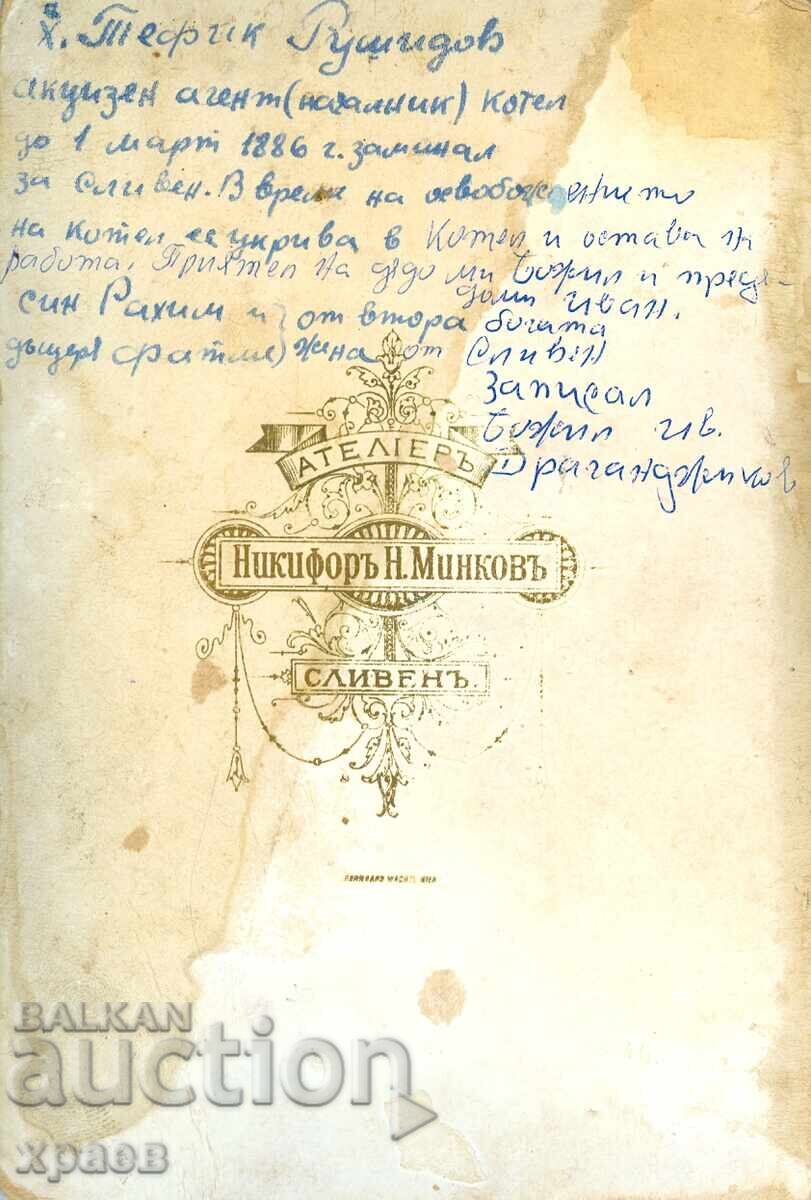 х. Тефик Рушидов
акцизен агент (началник) Котел
до 1 март 1886 г. заминал
за Сливен. В време на освобождението
на Котел се укрива в Котел и остава на
работа. Приятел на дядо ми Божил и прадядо ми Иван.
син Рахим и от втора богата
дъщеря Фатме) жена от Сливен
Записал
Божил Ив.
Драганджиков
АТЕЛІЕРЪ
НИКИФОРЪ Н. МИНКОВЪ
СЛИВЕНЪ.
BERNHARD WACHTL WIEN
BALKAN
auction
храев